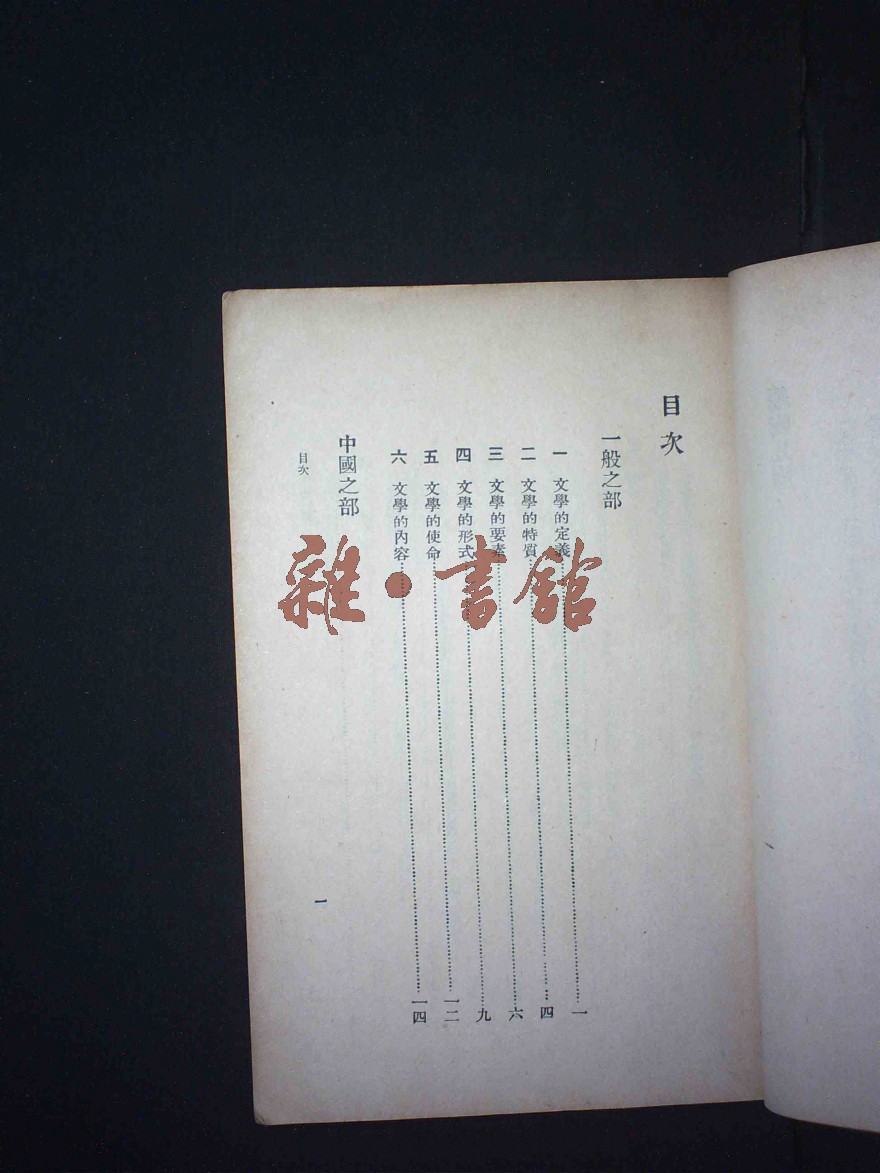 目次
一般之部
一 文學的定義……一
二 文學的特質……四
三 文學的要素……六
四 文學的形式……九
五 文學的使命……一二
六 文學的內容……一四
中國之部
目次
一
雜·書館